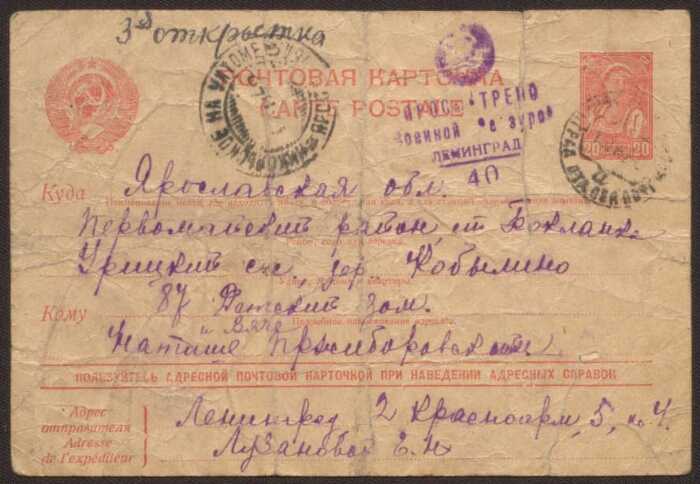 3я открытка
ПОЧТОВАЯ КАРТОЧКА
CARTE POSTALE
ПРОСМОТРЕНО
Военной Цензурой
ЛЕНИНГРАД
40
20 20
Куда Ярославская обл.
Первомайский район, ст. Бакланка
Урицкий с/с, дер. Кобылино
87 Детский дом.
Кому
и Вяче
Наташе Пржиборовским
ПОЛЬЗУЙТЕСЬ АДРЕСНОЙ ПОЧТОВОЙ КАРТОЧКОЙ ПРИ НАВЕДЕНИИ АДРЕСНЫХ СПРАВОК
Адрес отправителя
Adresse de l'expéditeur
Ленинград 2 Красноарм, 5, кв 4.
Лузановой Е. Н